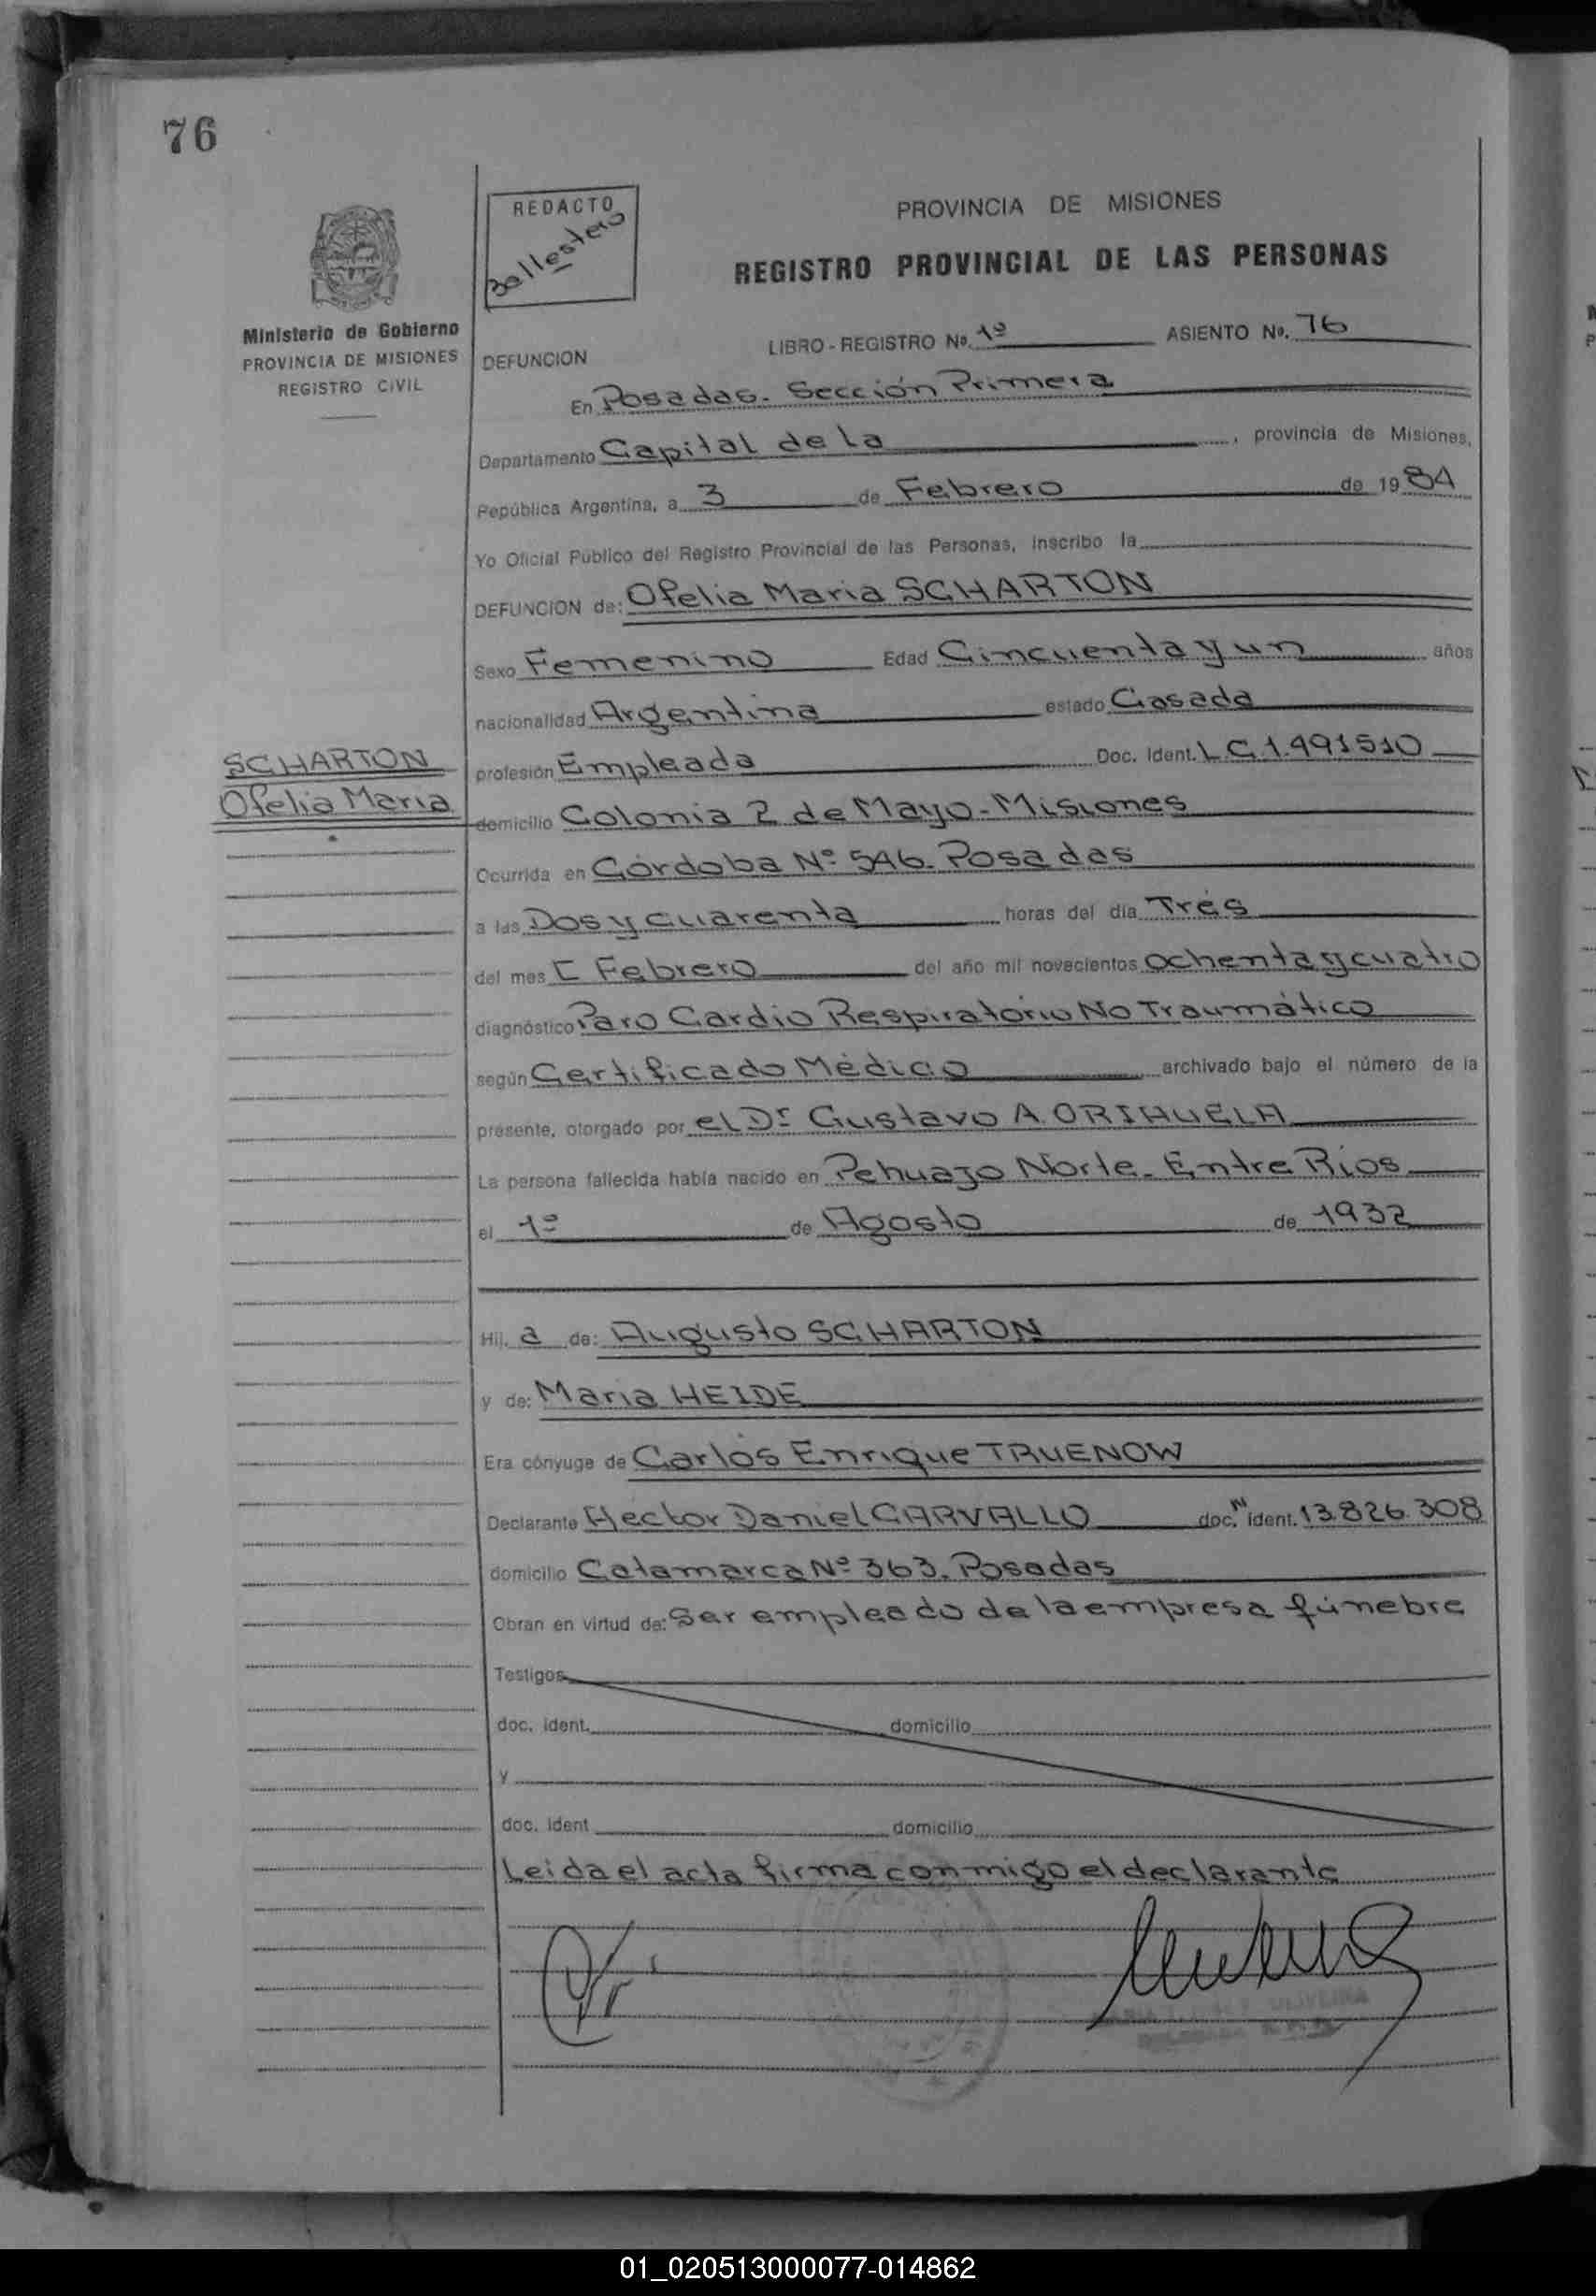 76
REDACTO
Ballestero
PROVINCIA DE MISIONES
REGISTRO PROVINCIAL DE LAS PERSONAS
Ministerio de Gobierno
PROVINCIA DE MISIONES
REGISTRO CIVIL
LIBRO - REGISTRO No. 1º ASIENTO No. 76
DEFUNCION
En Posadas. Sección Primera
Departamento Capital de la , provincia de Misiones,
República Argentina, a 3 de Febrero de 1984
Yo Oficial Público del Registro Provincial de las Personas, inscribo la
DEFUNCION de: Ofelia Maria SCHARTON
Sexo Femenino Edad Cincuenta y un años
nacionalidad Argentina estado Casada
SCHARTON
Ofelia Maria
profesión Empleada Doc. Ident. L.C.1.491510
domicilio Colonia 2 de Mayo - Misiones
Ocurrida en Córdoba Nº 546. Posadas
a las Dos y cuarenta horas del día Tres
del mes Febrero del año mil novecientos ochenta y cuatro
diagnóstico Paro Cardio Respiratorio No Traumático
según Certificado Médico archivado bajo el número de la
presente, otorgado por el Dr Gustavo A. ORIHUELA
La persona fallecida había nacido en Pehuajo Norte - Entre Rios
el 1º de Agosto de 1932
Hij a de: Augusto SCHARTON
y de: Maria HEIDE
Era cónyuge de Carlos Enrique TRUENOW
Declarante Hector Daniel CARVALLO doc. N ident. 13.826.308
domicilio Catamarca Nº 363. Posadas
Obran en virtud de: Ser empleado de la empresa fúnebre
Testigos
doc. ident. domicilio
y
doc. ident domicilio
Leida el acta firma conmigo el declarante
OLIVEIRA
01_020513000077-014862